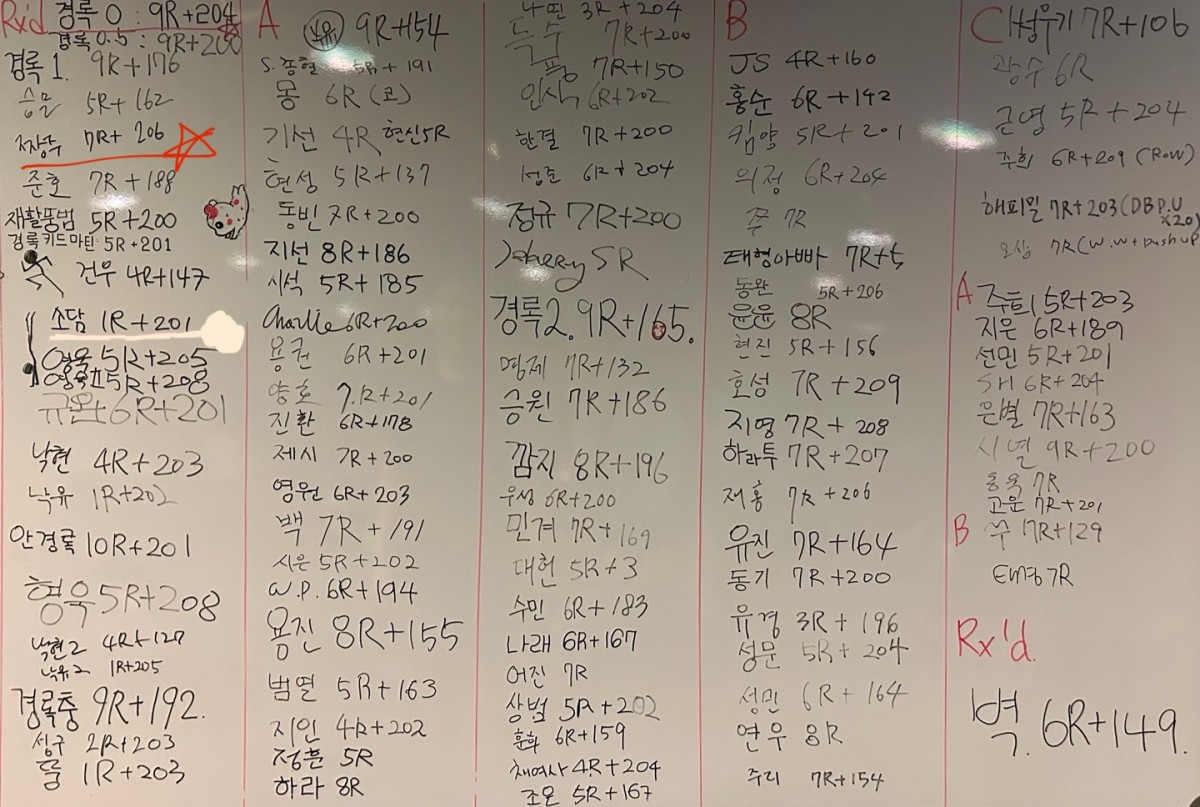 Rx'd 경록 0 : 9R+204
경록 0.5 : 9R+200
경록 1. 9R+176
승물 5R+162
짱수 7R+206
준호 7R+188
재활뚱법 5R+200
경록키드마틴 5R+201
건우 4R+147
소담 1R+201
영욱 5R+205
영욱II 5R+208
규완+6R+201
낙현 4R+203
낙유 1R+202
안경록 10R+201
형욱 5R+208
낙현2 4R+127
낙유2 1R+205
경록충 9R+192.
싱구 2R+203
뚤 1R+203
A 9R+154
S.종현 5R+191
몽 6R(코)
기선 4R 현신5R
현성 5R+137
동빈 7R+200
지선 8R+186
시석 5R+185
Charlie 6R+200
용권 6R+201
양호 7R+201
진환 6R+178
제시 7R+200
영원 6R+203
백 7R+191
시은 5R+202
W.P. 6R+194
용진 8R+155
범열 5R+163
지인 4R+202
정훈 5R
하라 8R
나띤 3R+204
득수 7R+200
퐁 7R+150
인식 6R+202
한결 7R+200
성준 6R+204
정규 7R+200
Jherry 5R
경록2. 9R+165.
명제 7R+132
승원 7R+186
깜지 8R+196
우성 6R+200
민겨 7R+169
대헌 5R+3
수민 6R+183
나래 6R+167
어진 7R
상범 5R+202
훈희 6R+159
채여사 4R+204
조은 5R+167
B
JS 4R+160
홍순 6R+142
킴약 5R+201
의정 6R+204
쭈 7R
태형아빠 7R+5
동완 5R+206
윤윤 8R
현진 5R+156
호성 7R+209
지영 7R+208
하라투 7R+207
재홍 7R+206
유진 7R+164
동기 7R+200
유경 3R+196
성문 5R+204
성민 6R+164
연우 8R
주리 7R+154
C 7R+106
광수 6R
근영 5R+204
주희 6R+209 (ROW)
해피밀 7R+203(DB P.U x20)
오심 7R(W.W+Push up
A 주희1, 5R+203
지은 6R+189
선민 5R+201
SH 6R+204
은별 7R+163
시별 9R+200
홍욱 7R
고운 7R+201
B 쑤 17R+129
EMBH 7R
Rx'd.
벽. 6R+149.